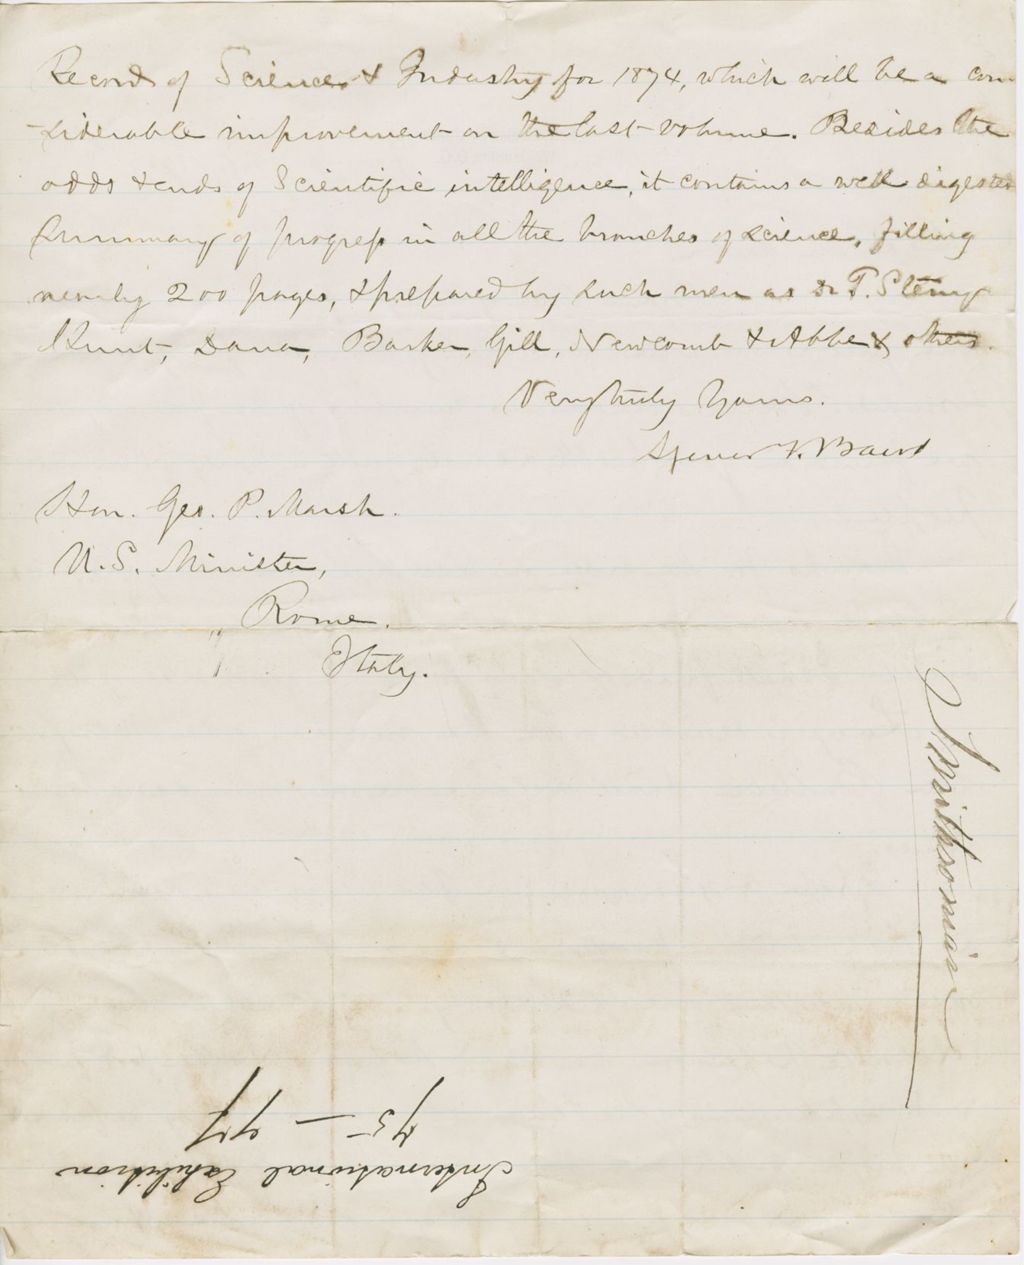 Record of Science & Industry for 1874, which will be a con
-siderable improvement on the last volume. Besides the
odds & ends of Scientific intelligence, it contains a well digested
Summary of progress in all the branches of science, filling
nearly 200 pages, & prepared by such men as Dr T. Sterry
Hunt, Dana, Barker, Gill, Newcomb & Abbe & others.
Very truly Yours.
Spencer F. Baird
Hon. Geo. P. Marsh.
U.S. Minister,
Rome.
Italy.
Smithsonian
International Exhibition
75 –